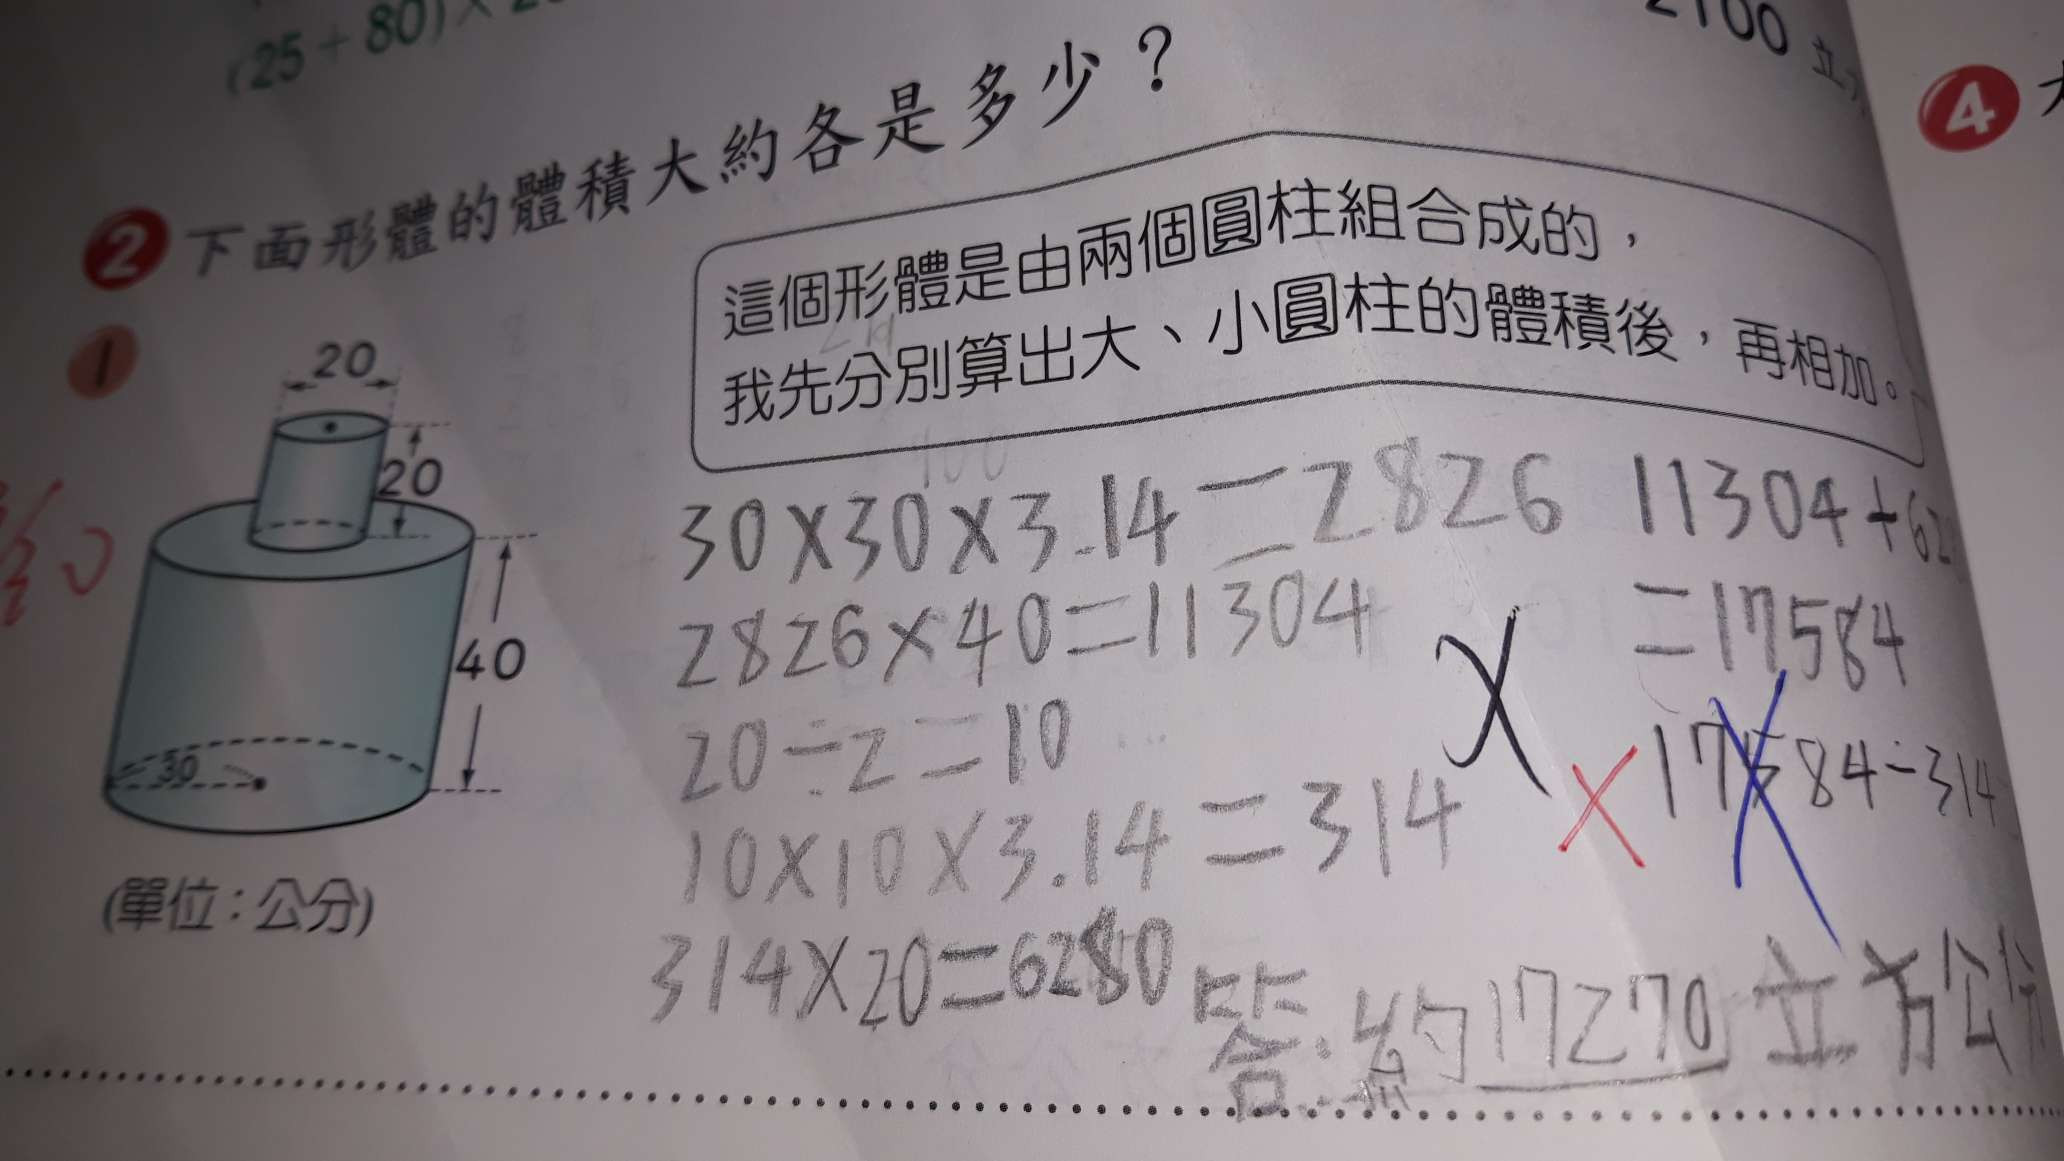 (25+80)×2
2100 立
❷ 下面形體的體積大約各是多少？
❹
❶
這個形體是由兩個圓柱組合成的，
我先分別算出大、小圓柱的體積後，再相加。
20
20
40
30
(單位：公分)
30×30×3.14=2826
2826×40=11304
20÷2=10
10×10×3.14=314
314×20=6280
11304+62
=17584
17584-314
答：約17270立方公分